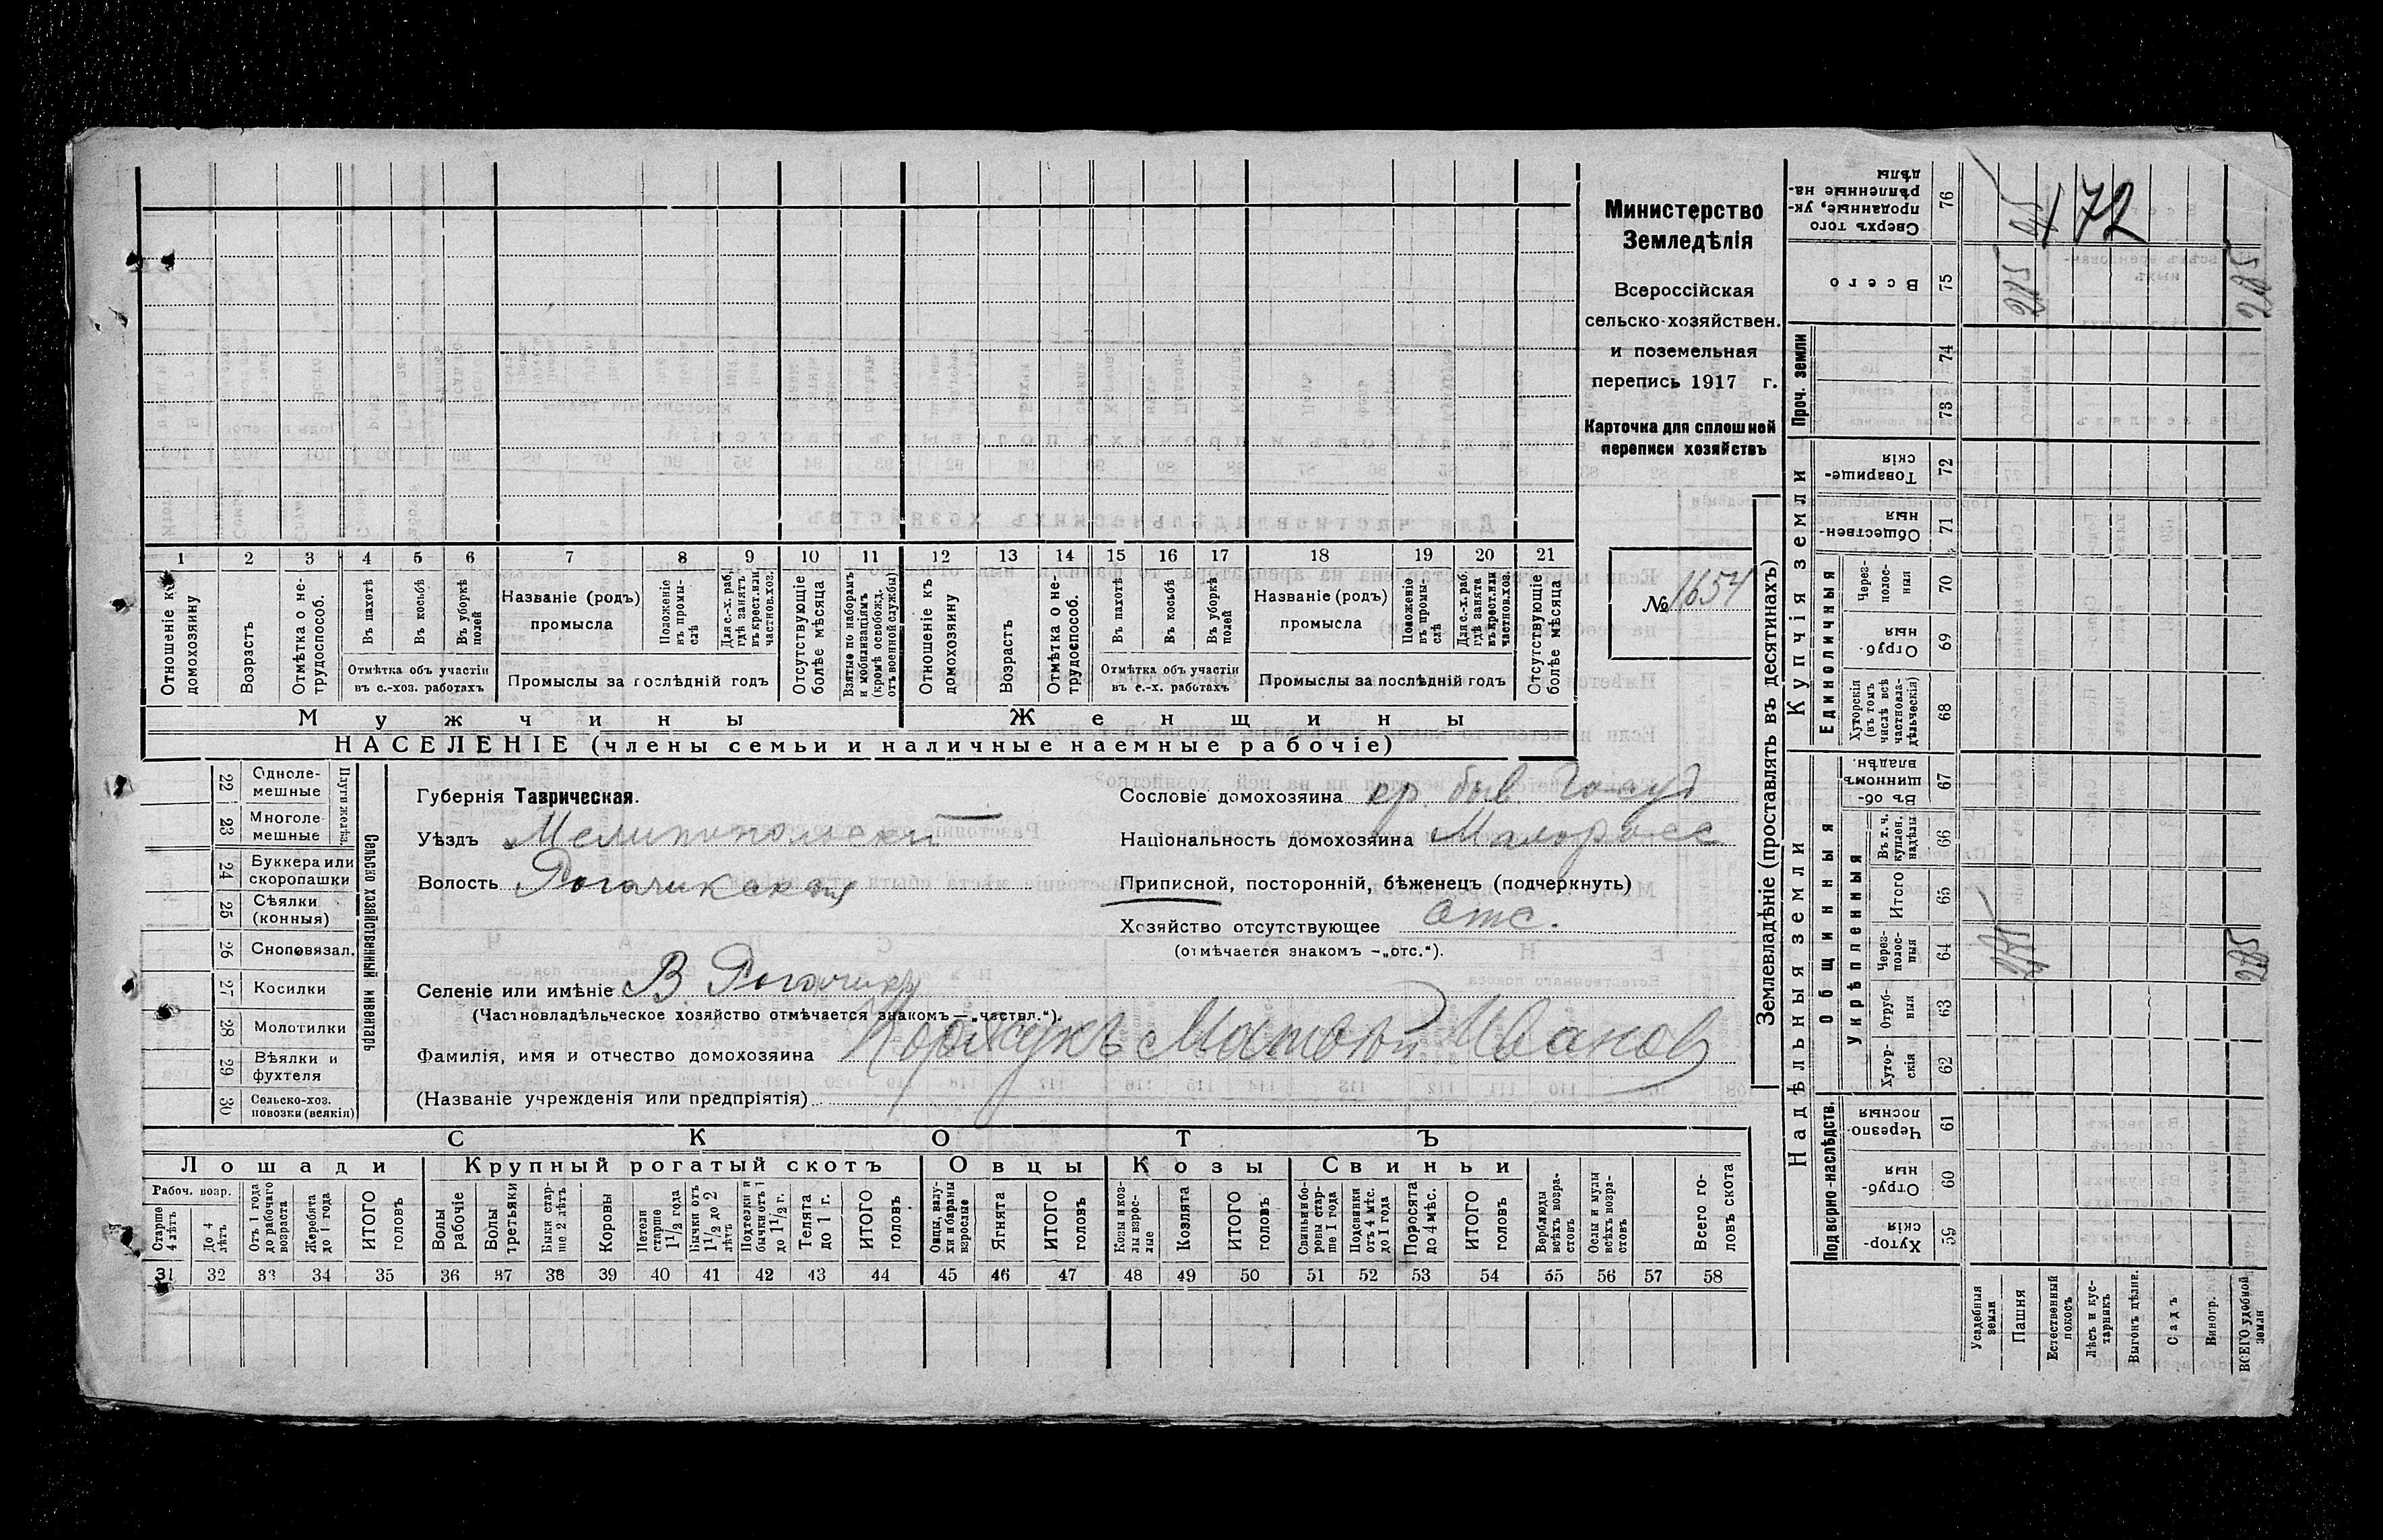 Министерство
Земледѣлія
Всероссійская
сельско-хозяйствен.
и поземельная
перепись 1917 г.
Карточка для сплошной
переписи хозяйствъ
№ 1654
1 2 3 4 5 6 7 8 9 10 11 12 13 14 15 16 17 18 19 20 21
Отношеніе къ домохозяину
Возрастъ
Отмѣтка о не-трудоспособ.
Въ пахотѣ
Въ косьбѣ
Въ уборкѣ полей
Отмѣтка объ участіи
въ с.-хоз. работахъ
Названіе (родъ)
промысла
Положеніе въ промы-слѣ
Для с.-х. раб. гдѣ занятъ въ крест. или частнов. хоз.
Промыслы за послѣдній годъ
Отсутствующіе болѣе мѣсяца
Взятые по наборамъ и мобилизаціямъ (кромѣ освобожд. отъ военной службы)
Отношеніе къ домохозяину
Возрастъ
Отмѣтка о не-трудоспособ.
Въ пахотѣ
Въ косьбѣ
Въ уборкѣ полей
Отмѣтка объ участіи
въ с.-х. работахъ
Названіе (родъ)
промысла
Положеніе въ промы-слѣ
Для с.-х. раб. гдѣ занята въ крест. или частнов. хоз.
Промыслы за послѣдній годъ
Отсутствующіе болѣе мѣсяца
Мужчины
Женщины
НАСЕЛЕНІЕ (члены семьи и наличные наемные рабочіе)
Сельско хозяйственный инвентарь
22 Одноле-мешные
23 Многоле-мешные
24 Буккера или скоропашки
25 Сѣялки (конныя)
26 Сноповязал.
27 Косилки
28 Молотилки
29 Вѣялки и фухтеля
30 Сельско-хоз. повозки (всякія)
Губернія Таврическая.
Уѣздъ Мелитопольскій
Волость Рогачикская
Селеніе или имѣніе В. Рогачикъ
(Частновладѣльческое хозяйство отмѣчается знакомъ — „частвл.“).
Фамилія, имя и отчество домохозяина Коржукъ Матвѣй Иванов
(Названіе учрежденія или предпріятія)
Сословіе домохозяина кр. быв. Госуд
Національность домохозяина Малоросс
Приписной, посторонній, бѣженецъ (подчеркнуть)
Хозяйство отсутствующее отс.
(отмѣчается знакомъ — „отс.“).
СКОТЪ
Лошади
Крупный рогатый скотъ
Овцы
Козы
Свиньи
Рабоч. возр.
Старше 4 лѣтъ
До 4 лѣтъ
Отъ 1 года до рабочаго возраста
Жеребята до 1 года
ИТОГО головъ
Волы рабочіе
Волы третьяки
Быки стар-ше 2 лѣтъ
Коровы
Нетели старше 1½ года
Бычки отъ 1½ до 2 лѣтъ
Подтелки и бычки отъ 1 до 1½ г.
Телята до 1 г.
ИТОГО головъ
Овцы, валу-хи и бараны взрослые
Ягнята
ИТОГО головъ
Козы и коз-лы взрос-лые
Козлята
ИТОГО головъ
Свиньи и бо-ровы стар-ше 1 года
Подсвинки отъ 4 мѣс. до 1 года
Поросята до 4 мѣс.
ИТОГО головъ
Верблюды всѣхъ возра-стовъ
Ослы и мулы всѣхъ возра-стовъ
Всего го-ловъ скота
31 32 33 34 35 36 37 38 39 40 41 42 43 44 45 46 47 48 49 50 51 52 53 54 55 56 57 58
Землевладѣніе (проставлять въ десятинахъ)
Надѣльныя земли
Купчія земли
Проч. земли
Подворно-наслѣдств.
Общинныя
Укрѣпленныя
Единоличныя
Сверхъ того проданные, ук-рѣпленные на-дѣлы 76
Всего 75
74
73
Товарище-скія 72
Обществен-ныя 71
Через-полос-ныя 70
Отруб-ныя 69
Хуторскія (въ томъ числѣ всѣ частновла-дѣльческія) 68
Въ об-щинномъ владѣн. 67
Въ т. ч. куплен. надѣлы 66
Итого 65
Через-полос-ныя 64
Отруб-ныя 63
Хутор-скія 62
Черезпо-лосныя 61
Отруб-ныя 60
Хутор-скія 59
Усадебныя земли
Пашня
Естественный покосъ
Лѣсъ и кус-тарникъ
Выгонъ цѣлин.
Садъ
Виногр.
ВСЕГО удобной земли
172